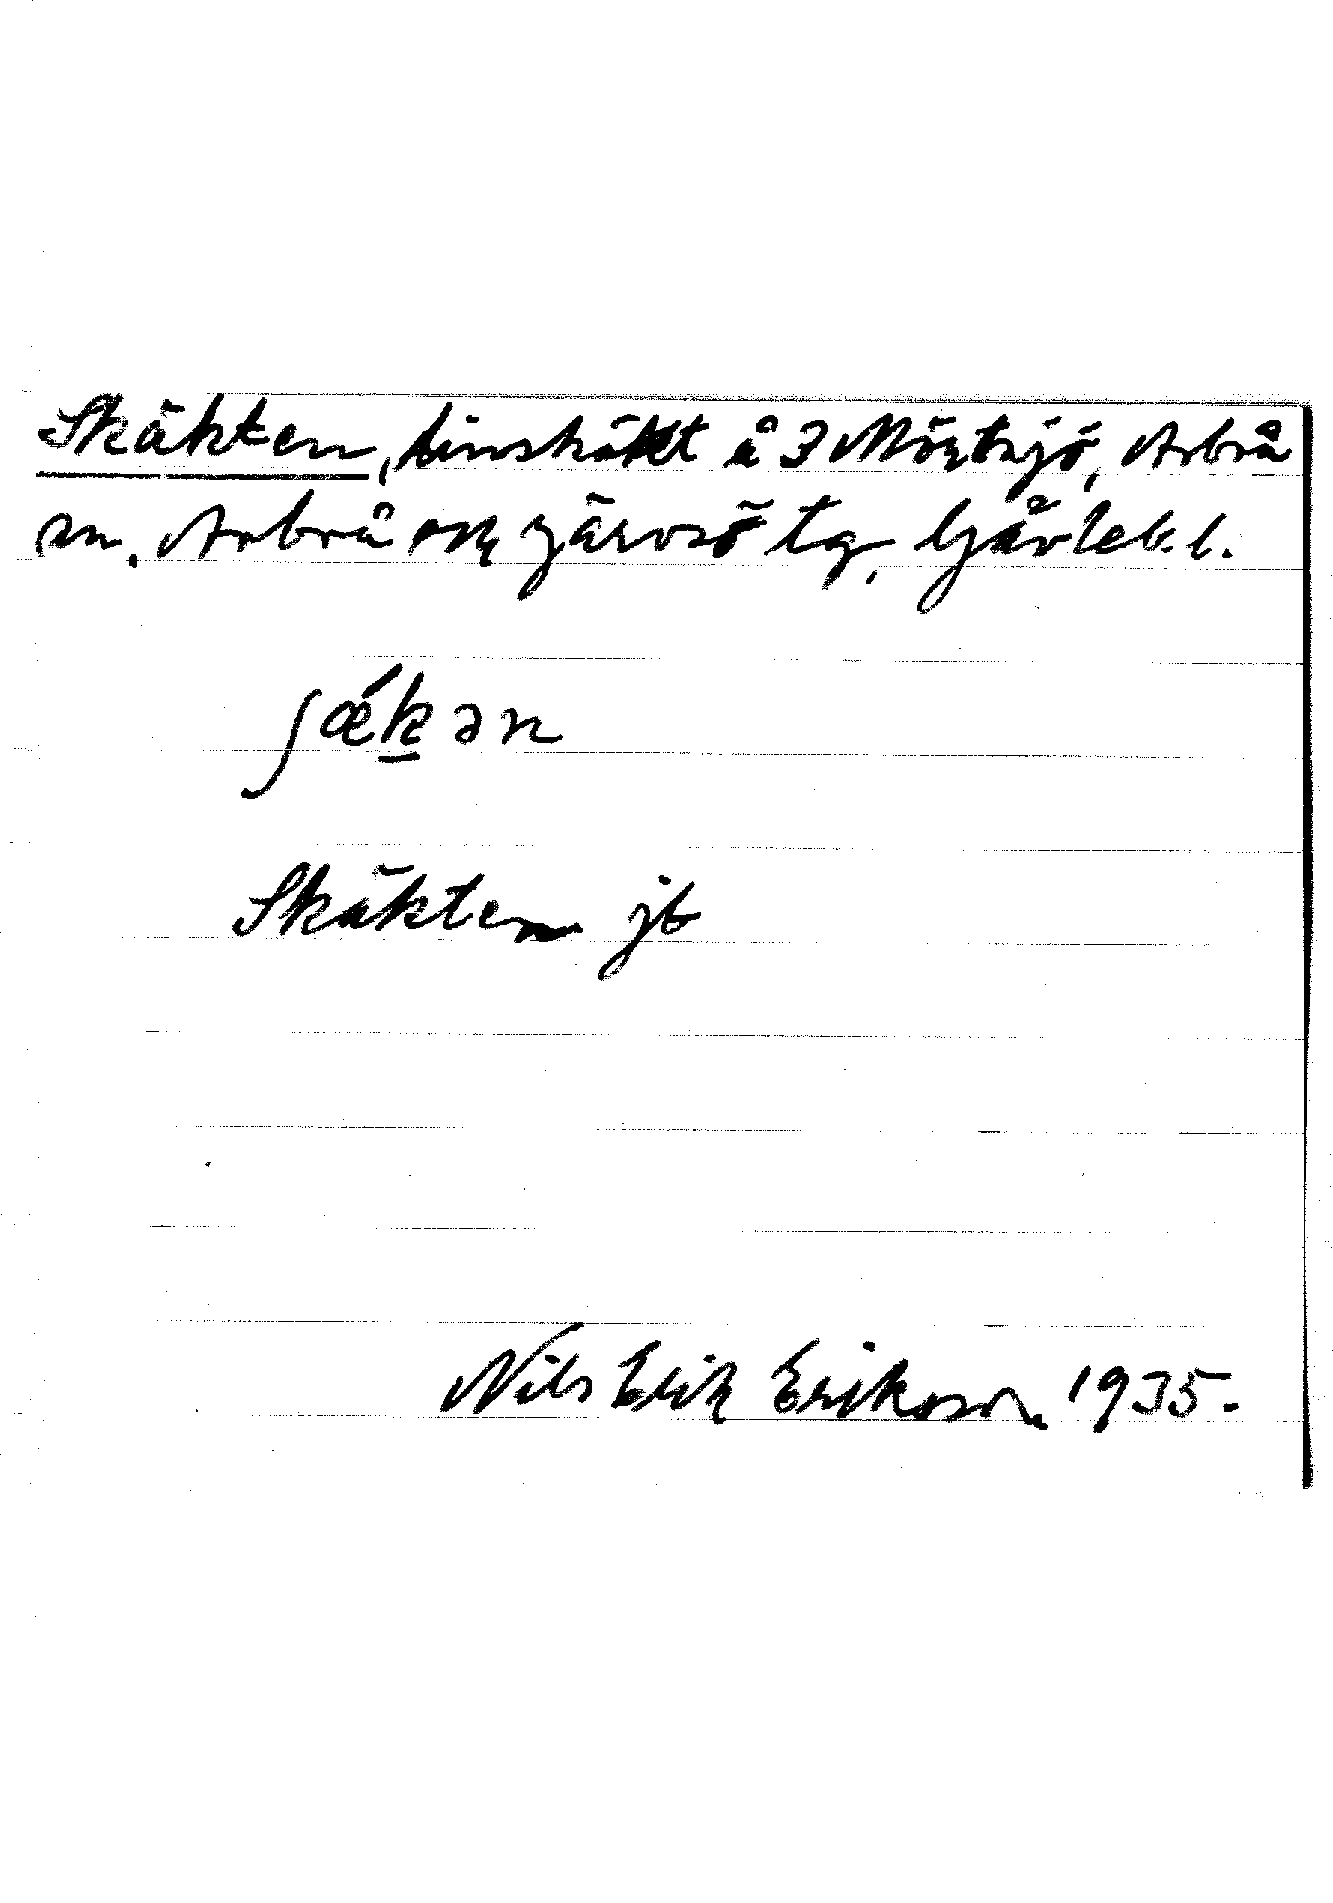 Skäkten, linskäkt å 3 Mörtsjö, Arbrå
sn, Arbrå och Järvsö tg, Gävleb. l.
ʃǽk̲ən
Skäkten jb
Nils Erik Erikson 1935.